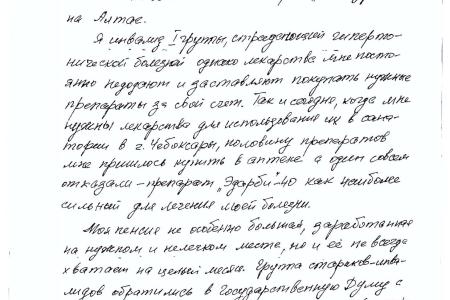 на Алтае.
Я инвалид I группы, страдающий гиперто-
нической болезнью однако лекарства мне посто-
янно недодают и заставляют покупать нужные
препараты за свой счет. Так и сегодня, когда мне
нужны лекарства для использования их в сана-
тории в г. Чебоксары, половину препаратов
мне пришлось купить в аптеке а один совсем
отказали - препарат „Эдарби"-40 как наиболее
сильный для лечения моей болезни.
Моя пенсия не особенно большая, заработанная
на нужном и нелегком месте, но и её не всегда
хватает на целый месяц. Группа стариков-инва-
лидов обратились в Государственную Думу с